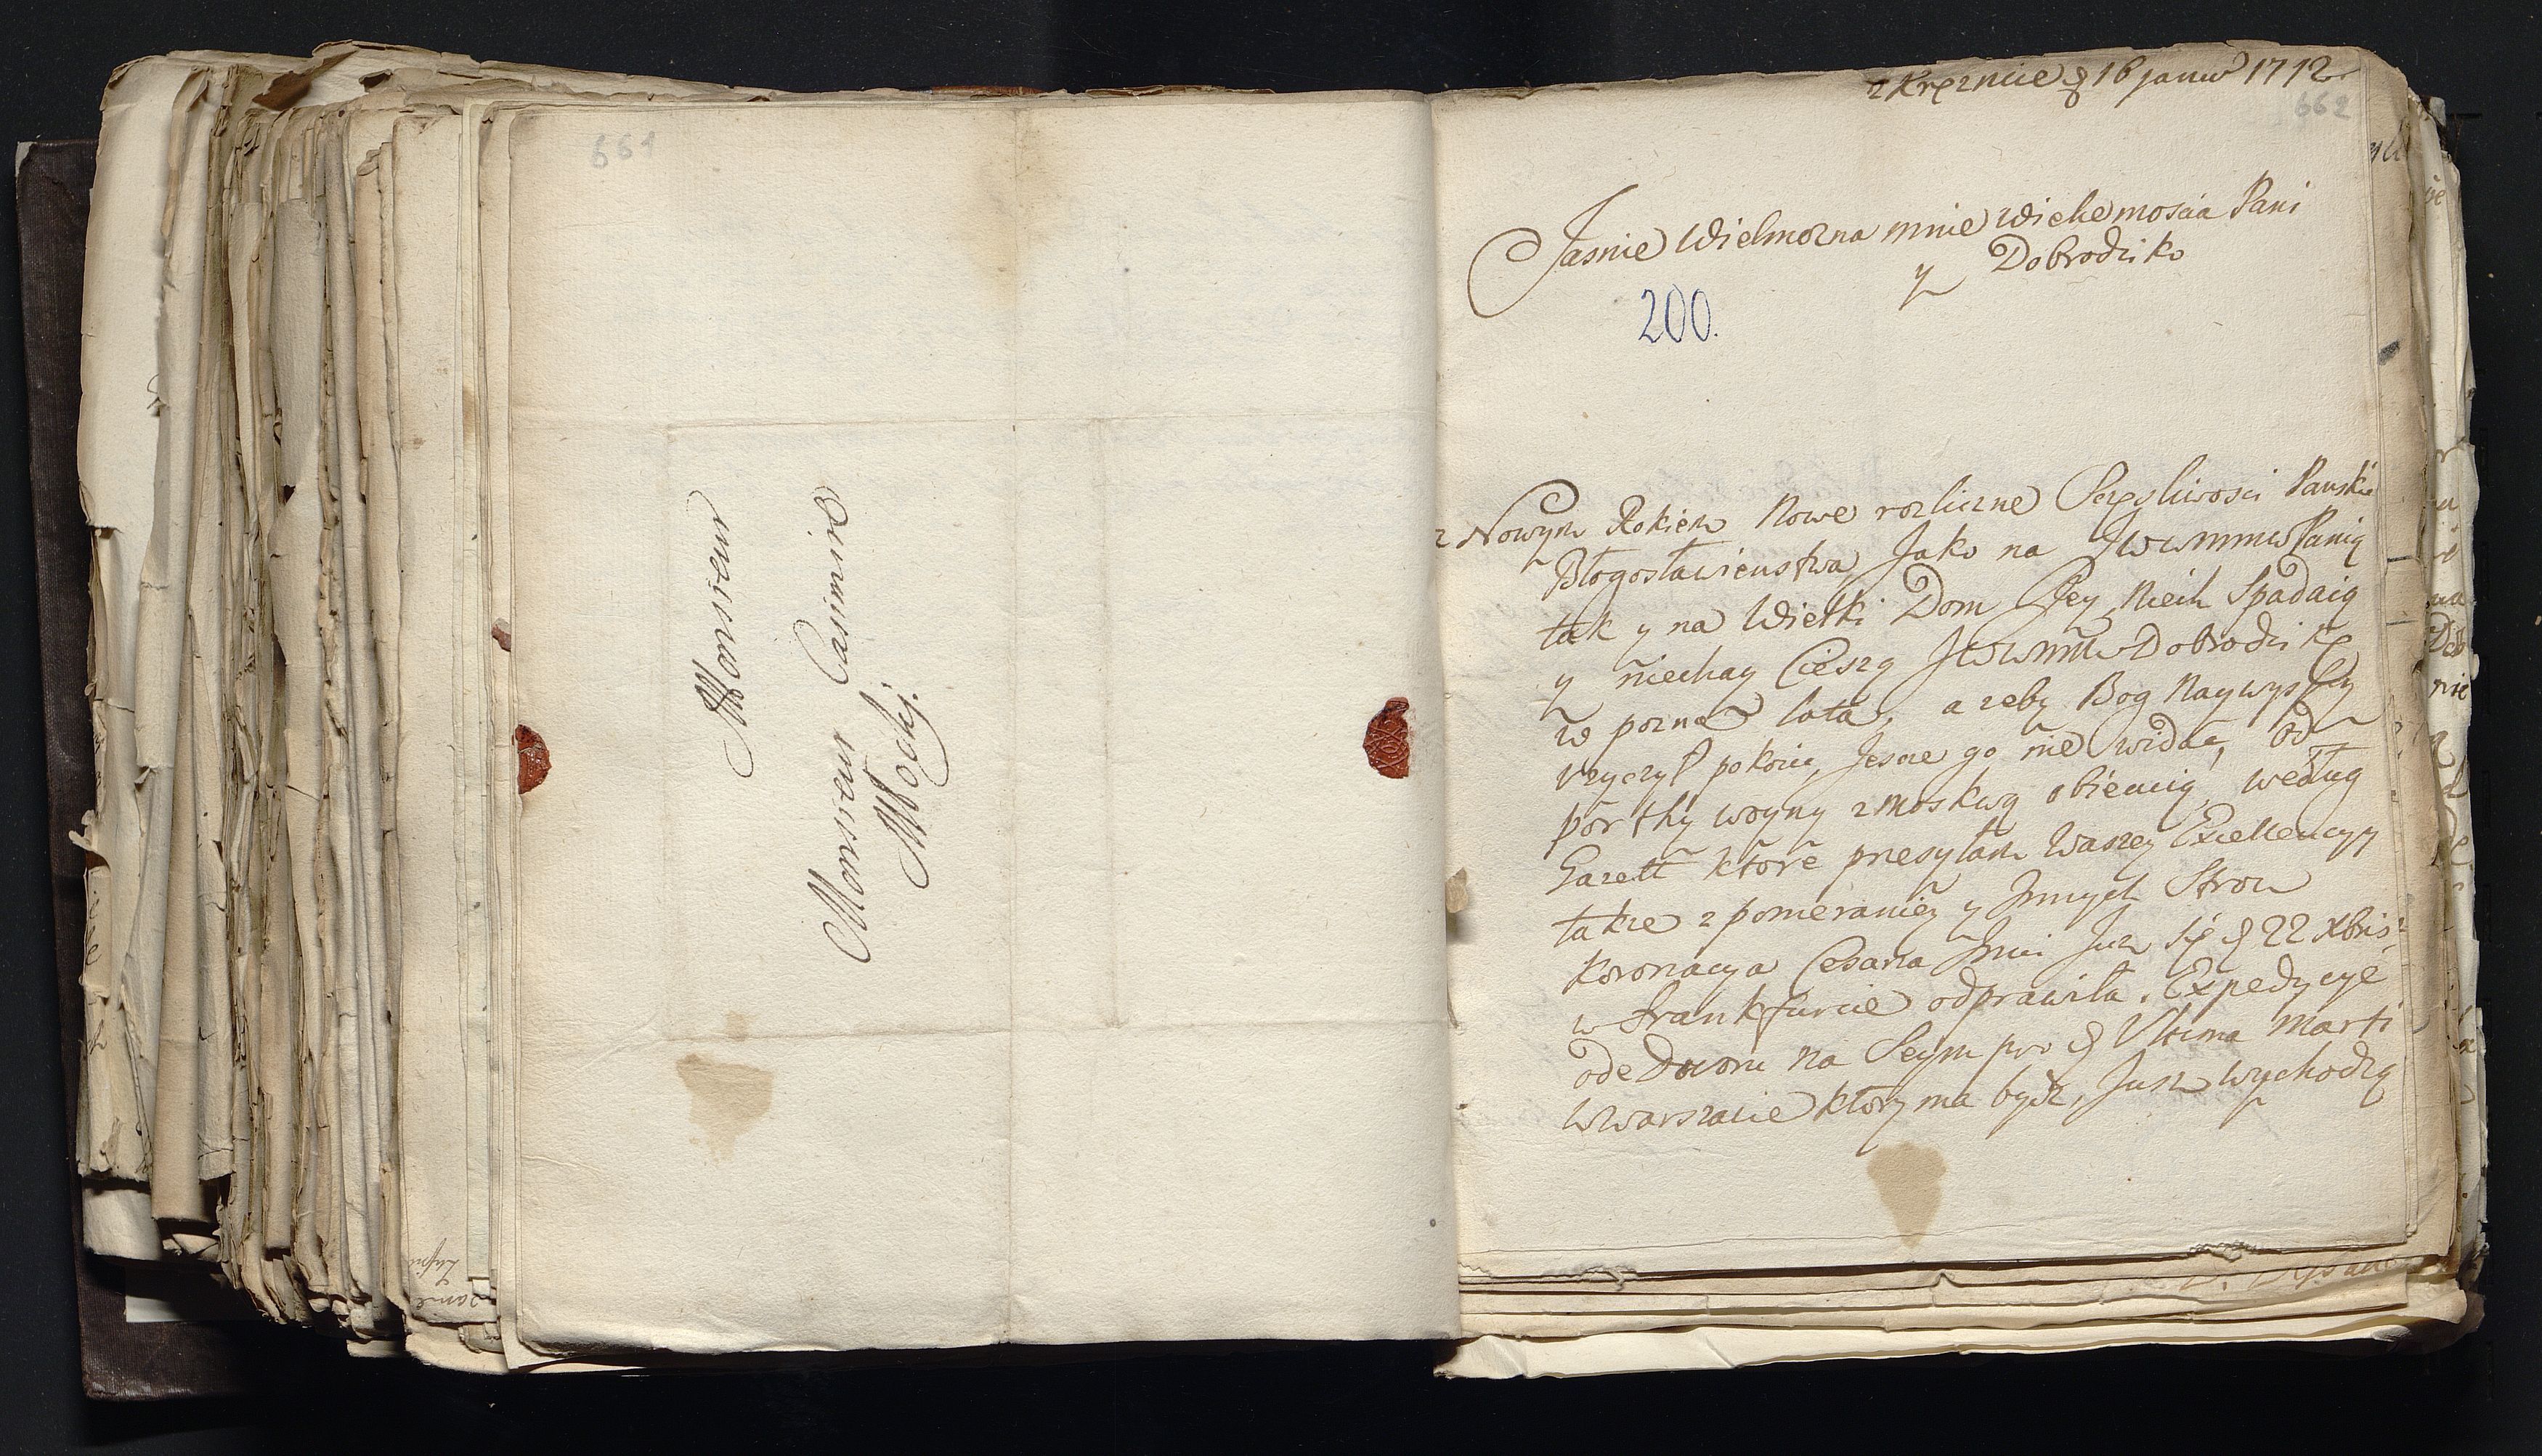 661
Monsieur
Monsieur Casimire
Mocky.
z Kręznice d 16 januar 1712
662
Jasnie Wielmozna mnie Wielce moscia Pani
y Dobrodziko
200.
z Nowym Rokiem Nowe rozliczne Sczęsliwosci Panskie
Błogosławienstwa, Jako na JWWMMWPanią
tak y na Wielki Dom Jey, Niech Spadaią
y niechay Cieszą JWWMMW Dobrodzikę
w pozne lata, a zeby Bog Naywyszszy
uzyczył pokoiu, Jesce go nie widac, od
porthy woyny z Moskwą obiecuią, według
Gazett ktore przesyłam Waszey Excellencyy
takze z pomeraniey y Jnnych Stron
Koronacya Cesarza Jmci Juz Się d 22 Xbris
w Frankfurcie odprawiła. Expedycye
ode Dworu na Seym pro d Vltima Marti
w Warszawie ktory ma bydz, Jusz wychodzą